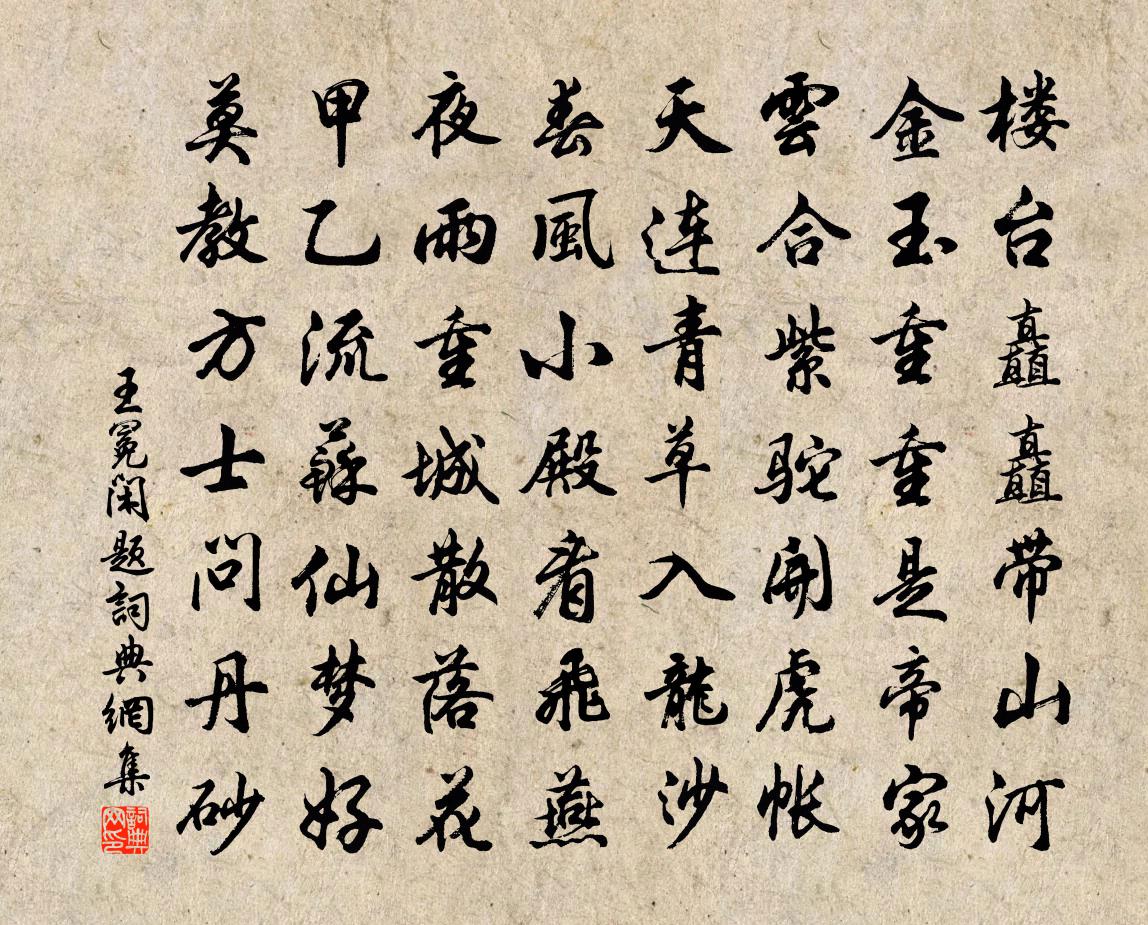 楼台矗矗带山河
金玉重重是帝家
雲合紫驼開虎帐
天连青草入龍沙
春風小殿看飛燕
夜雨重城散落花
甲乙流蘇仙梦好
莫教方士问丹砂
王冕闲题詞典網集
詞典网印